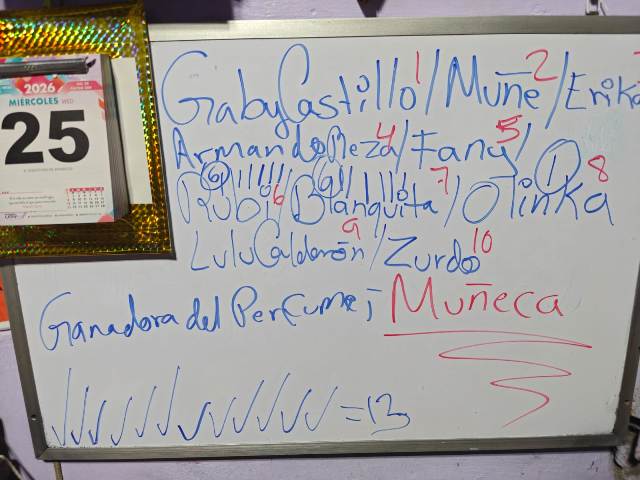 2026
MIÉRCOLES WED
25
Gaby Castillo 1 / Muñe 2 / Erika
Armando Reza 4 / Fany 5 /
6 1
Rubi 6 / Blanquita 7 / Olinka 8
Lulu Calderón 9 / Zurdo 10
Ganadora del Perfume; Muñeca
= 13